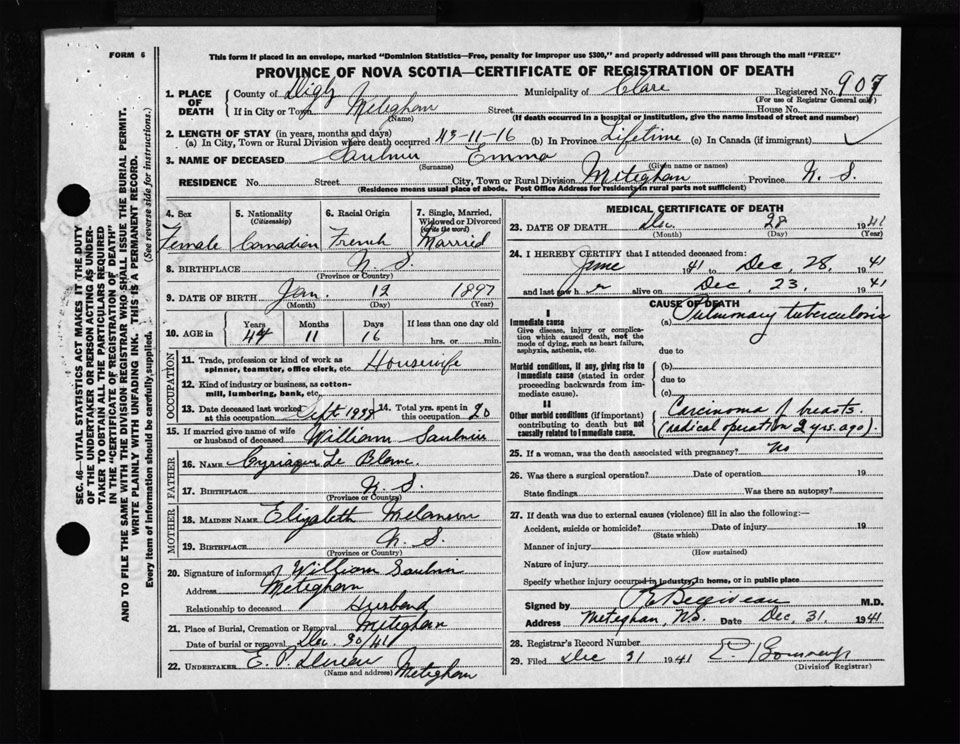 FORM 6
This form if placed in an envelope, marked "Dominion Statistics—Free, penalty for improper use $300," and properly addressed will pass through the mail "FREE"
PROVINCE OF NOVA SCOTIA—CERTIFICATE OF REGISTRATION OF DEATH
1. PLACE OF DEATH County of Digby Municipality of Clare Registered No. 907
(For use of Registrar General only)
If in City or Town Meteghan Street House No.
(Name) (If death occurred in a hospital or institution, give the name instead of street and number)
2. LENGTH OF STAY (in years, months and days)
(a) In City, Town or Rural Division where death occurred 43-11-16 (b) In Province Lifetime (c) In Canada (if immigrant)
3. NAME OF DECEASED Saulnier Emma
(Surname) (Given name or names)
RESIDENCE No. Street City, Town or Rural Division Meteghan Province N. S.
(Residence means usual place of abode. Post Office Address for residents in rural parts not sufficient)
4. Sex 5. Nationality (Citizenship) 6. Racial Origin 7. Single, Married, Widowed or Divorced (write the word)
Female Canadian French Married
8. BIRTHPLACE N. S.
(Province or Country)
9. DATE OF BIRTH Jan. 12 1897
(Month) (Day) (Year)
10. AGE in Years Months Days If less than one day old
44 11 16 hrs. or min.
OCCUPATION
11. Trade, profession or kind of work as spinner, teamster, office clerk, etc. Housewife
12. Kind of industry or business, as cotton-mill, lumbering, bank, etc.
13. Date deceased last worked at this occupation Sept 1939 14. Total yrs. spent in this occupation 20
15. If married give name of wife or husband of deceased William Saulnier
FATHER
16. NAME Cyriaque Le Blanc
17. BIRTHPLACE N. S.
(Province or Country)
MOTHER
18. MAIDEN NAME Elizabeth Melanson
19. BIRTHPLACE N. S.
(Province or Country)
20. Signature of informant William Saulnier
Address Meteghan
Relationship to deceased Husband
21. Place of Burial, Cremation or Removal Meteghan
Date of burial or removal Dec. 30/41
22. UNDERTAKER E. P. Meteghan
(Name and address)
MEDICAL CERTIFICATE OF DEATH
23. DATE OF DEATH Dec. 28 1941
(Month) (Day) (Year)
24. I HEREBY CERTIFY that I attended deceased from:
June 1941 to Dec. 28, 1941
and last saw her alive on Dec. 23, 1941
CAUSE OF DEATH
I
Immediate cause (a) Pulmonary tuberculosis
Give disease, injury or complication which caused death, not the mode of dying, such as heart failure, asphyxia, asthenia, etc.
due to
Morbid conditions, if any, giving rise to immediate cause (stated in order proceeding backwards from immediate cause).
(b)
due to
(c)
II
Other morbid conditions (if important) contributing to death but not causally related to immediate cause.
Carcinoma of breasts.
(radical operation 2 yrs. ago)
25. If a woman, was the death associated with pregnancy? No
26. Was there a surgical operation? Date of operation 19
State findings Was there an autopsy?
27. If death was due to external causes (violence) fill in also the following:—
Accident, suicide or homicide? Date of injury 19
(State which)
Manner of injury
(How sustained)
Nature of injury
Specify whether injury occurred in industry, in home, or in public place
Signed by M.D.
Address Meteghan, N.S. Date Dec. 31 1941
28. Registrar's Record Number
29. Filed Dec 31 1941
(Division Registrar)
SEC. 46—VITAL STATISTICS ACT MAKES IT THE DUTY
OF THE UNDERTAKER OR PERSON ACTING AS UNDER-
TAKER TO OBTAIN ALL THE PARTICULARS REQUIRED
IN THE "CERTIFICATE OF REGISTRATION OF DEATH"
AND TO FILE THE SAME WITH THE DIVISION REGISTRAR WHO SHALL ISSUE THE BURIAL PERMIT.
WRITE PLAINLY WITH UNFADING INK. THIS IS A PERMANENT RECORD.
Every item of information should be carefully supplied. (See reverse side for instructions.)